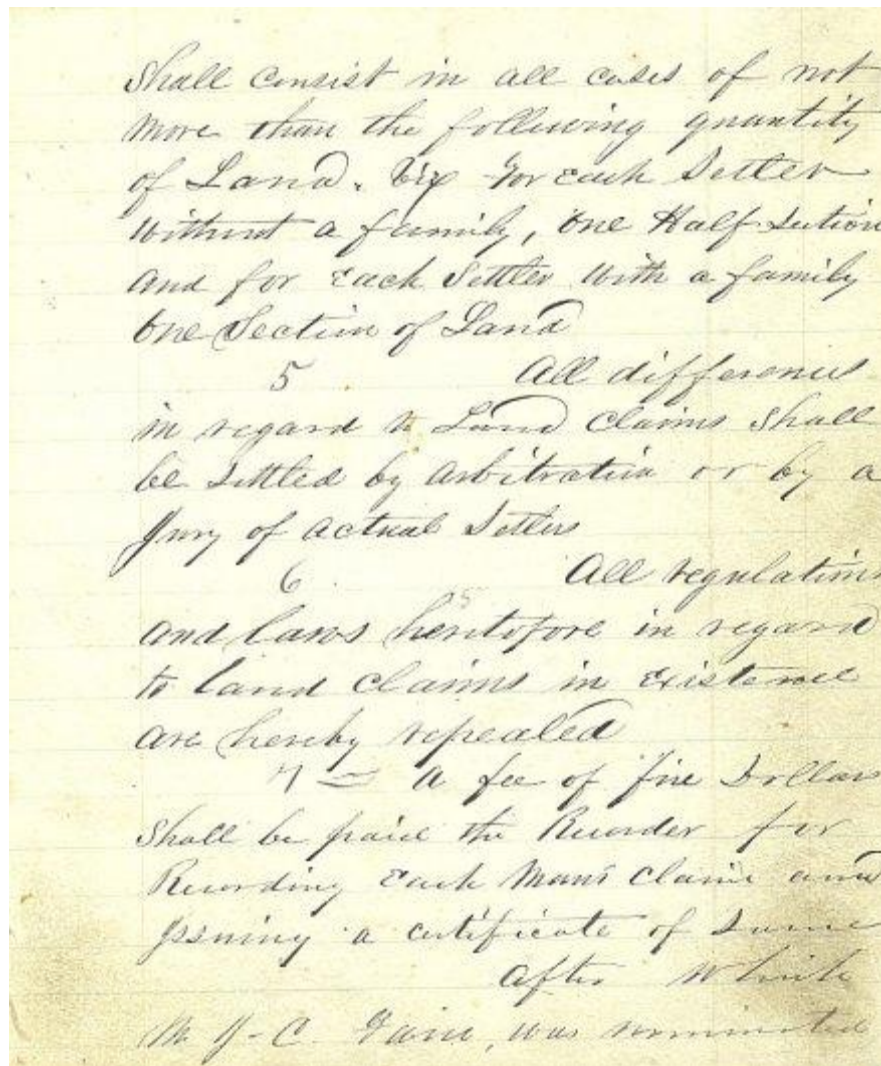 Shall Consist in all cases of not
more than the following quantity
of Land. viz For each Settler
without a family, one Half Section
and for Each Settler with a family
One Section of Land
5 All differences
in regard to Land Claims Shall
be Settled by Arbitration or by a
Jury of Actual Settlers
6 All regulations
and laws heretofore in regard
to land Claims in Existence
are hereby repealed
7 = A fee of five Dollars
Shall be paid the Recorder for
Recording Each Mans Claim and
Issuing a Certificate of Same
After Which
was nominated